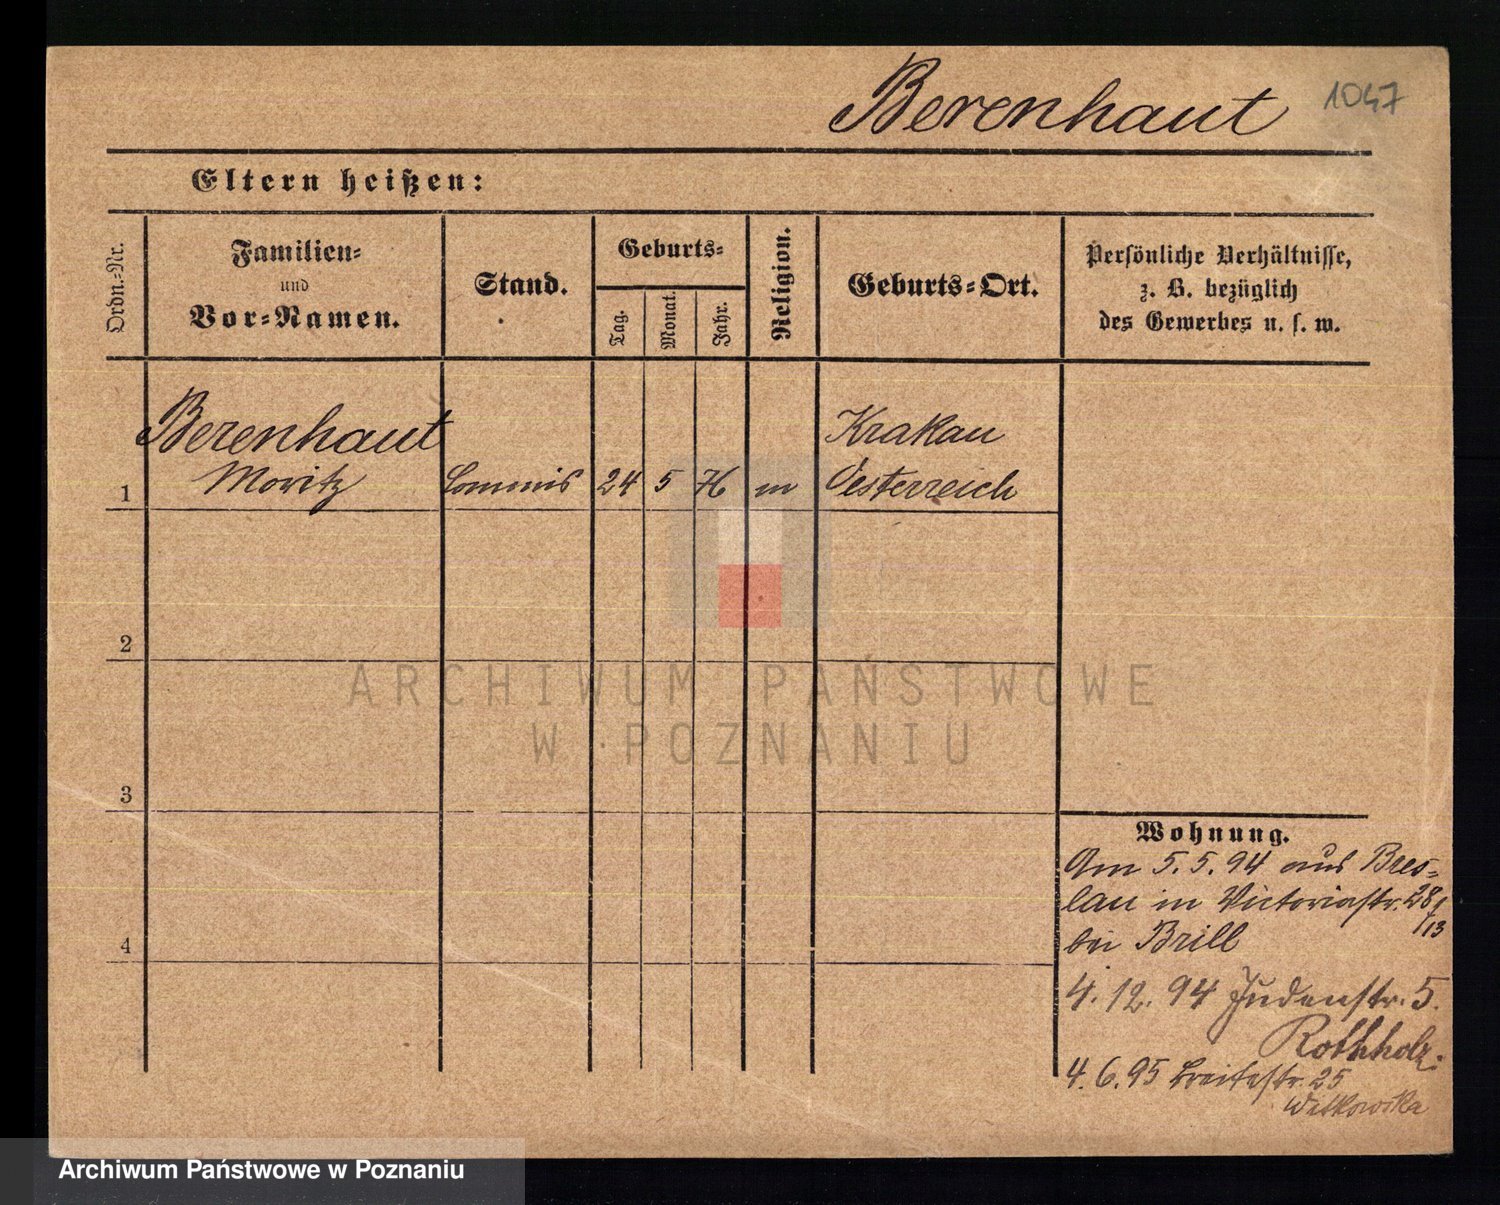 Berenhaut 1047
Eltern heißen:
Ordn.-Nr.
Familien-
und
Vor-Namen.
Stand.
Geburts-
Tag.
Monat.
Jahr.
Religion.
Geburts-Ort.
Persönliche Verhältnisse,
z. B. bezüglich
des Gewerbes u. s. w.
Berenhaut
Moritz
1
Commis
24
5
76
m
Krakau
Oesterreich
2
3
4
ARCHIWUM PAŃSTWOWE
W POZNANIU
Wohnung.
Am 5.5.94 aus Bres-
lau in Victoriastr. 28
/13
bei Brill
4.12.94 Judenstr. 5.
Rothholz.
4.6.95 Breitestr. 25
Witkowska
Archiwum Państwowe w Poznaniu